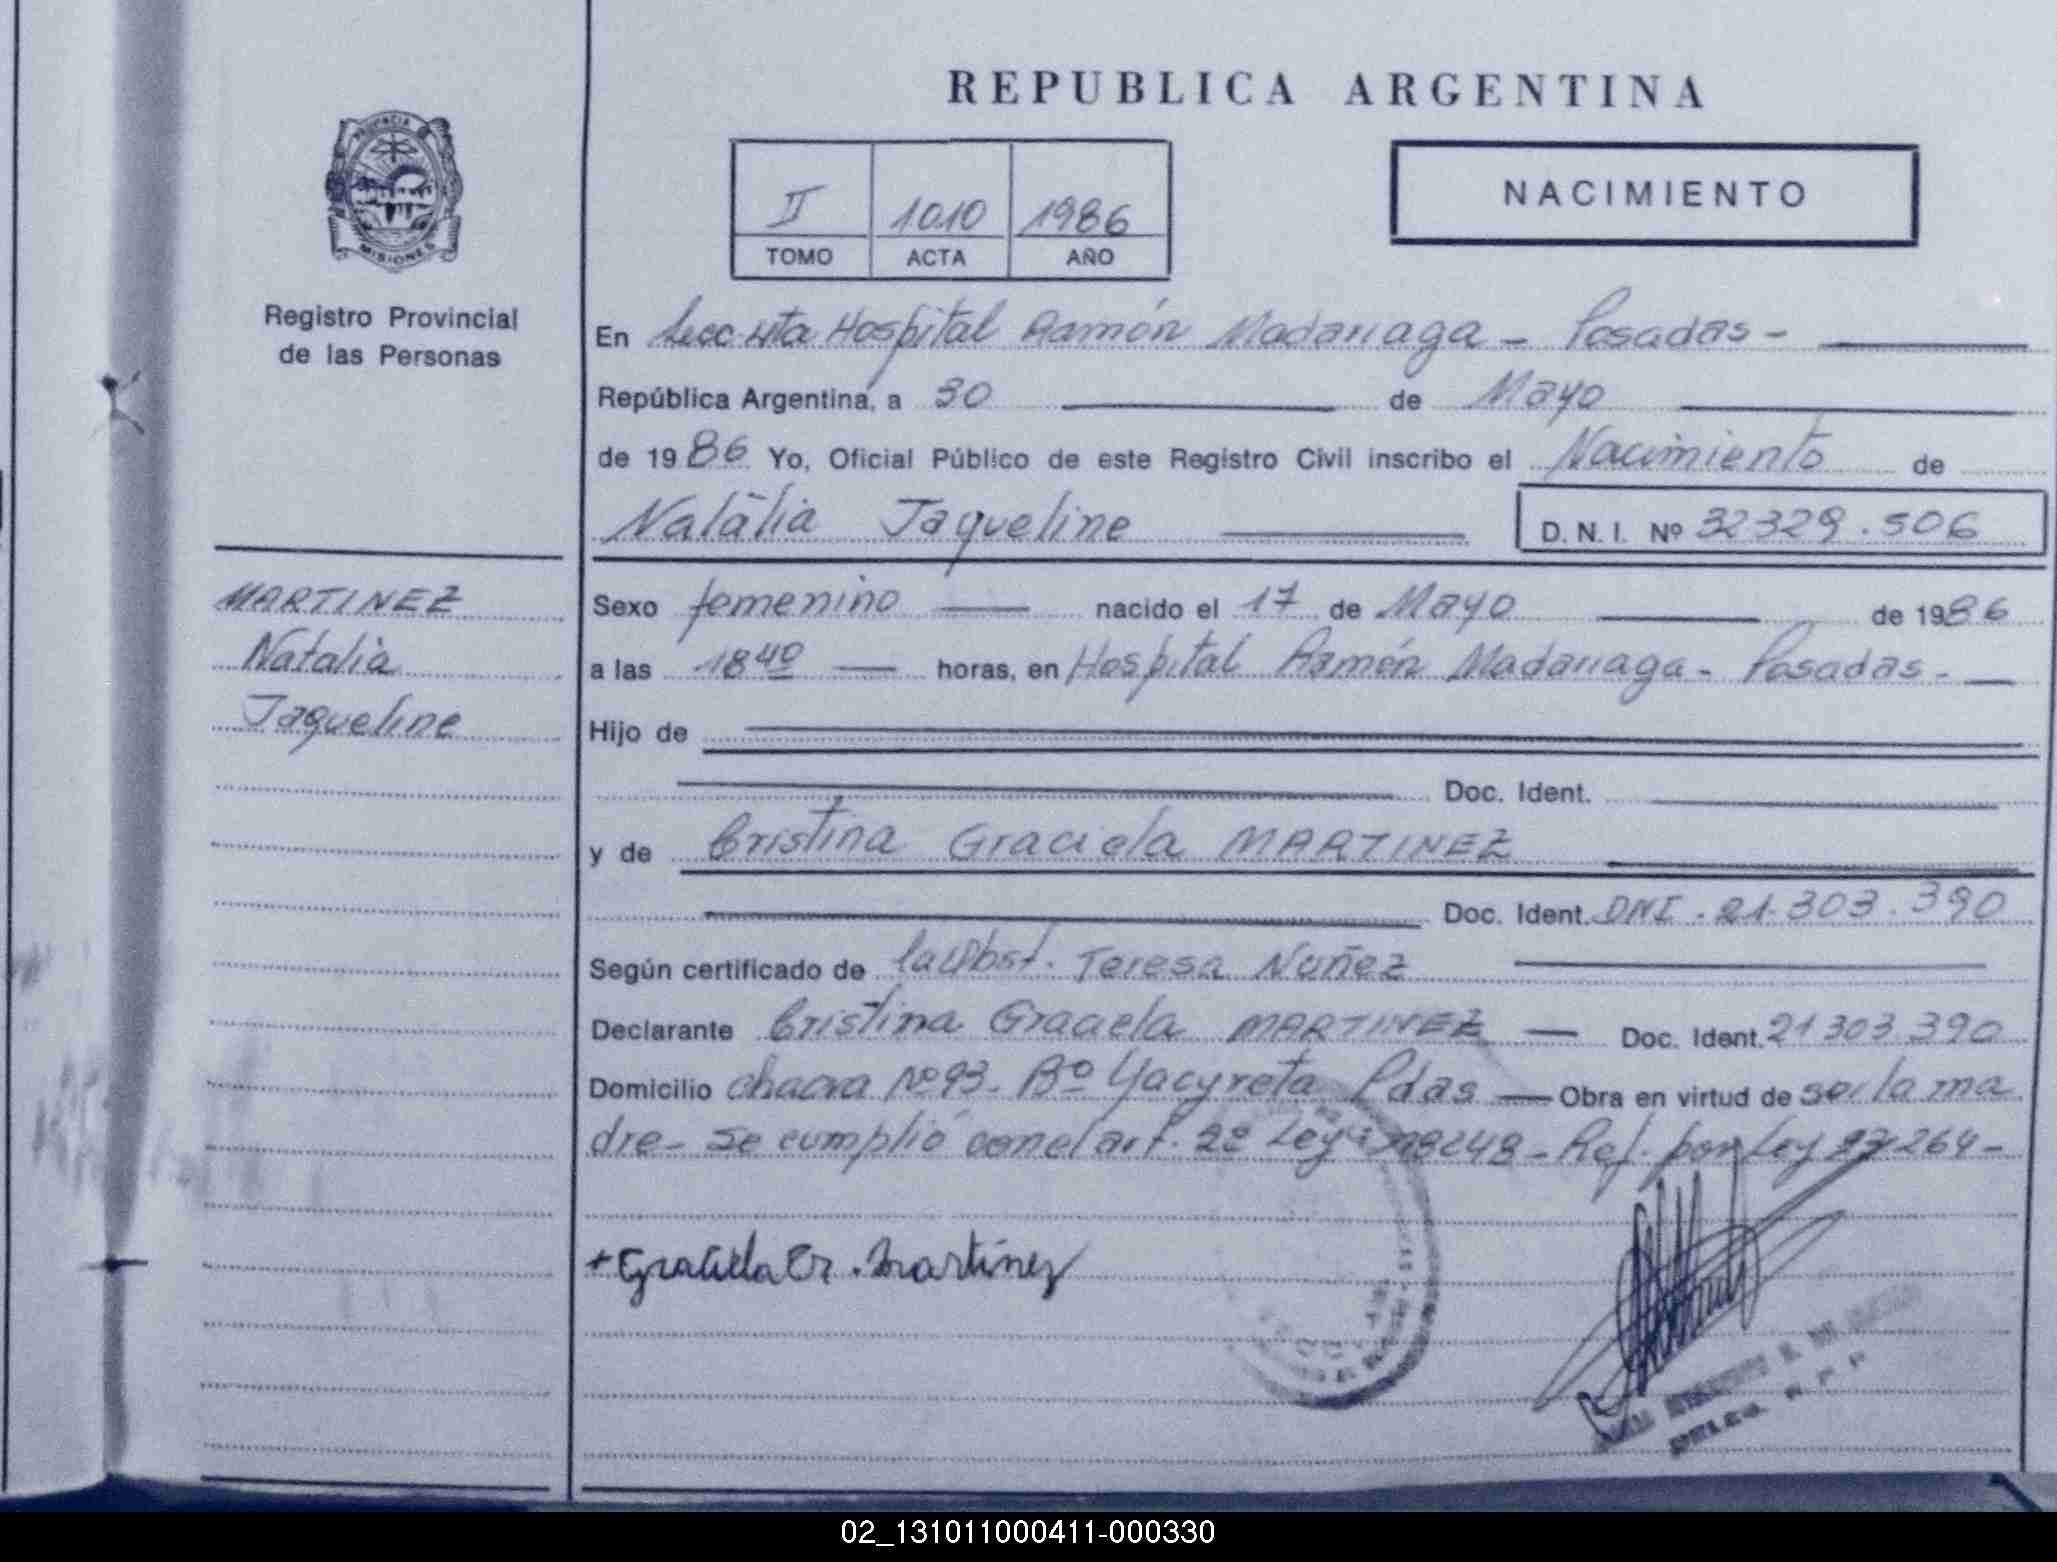 REPUBLICA ARGENTINA
PROVINCIA DE
MISIONES
Registro Provincial
de las Personas
II 1010 1986
TOMO ACTA AÑO
NACIMIENTO
En Secc. Hospital Ramón Madariaga - Posadas -
República Argentina, a 30 de Mayo
de 1986 Yo, Oficial Público de este Registro Civil inscribo el Nacimiento de
Natalia Jaqueline D.N.I. Nº 32329.506
MARTINEZ
Natalia
Jaqueline
Sexo femenino nacido el 17 de Mayo de 1986
a las 18 40 horas, en Hospital Ramón Madariaga - Posadas -
Hijo de
Doc. Ident.
y de Cristina Graciela MARTINEZ
Doc. Ident. DNI. 21.303.390
Según certificado de la Obst. Teresa Nuñez
Declarante Cristina Graciela MARTINEZ — Doc. Ident. 21 303 390
Domicilio chacra Nº 93 - Bº Yacyreta Pdas — Obra en virtud de ser la ma
dre - se cumplió con el art. 2º Ley 18248 - Ref. por Ley 23264 -
+ Graciela Cr. Martinez
02_131011000411-000330